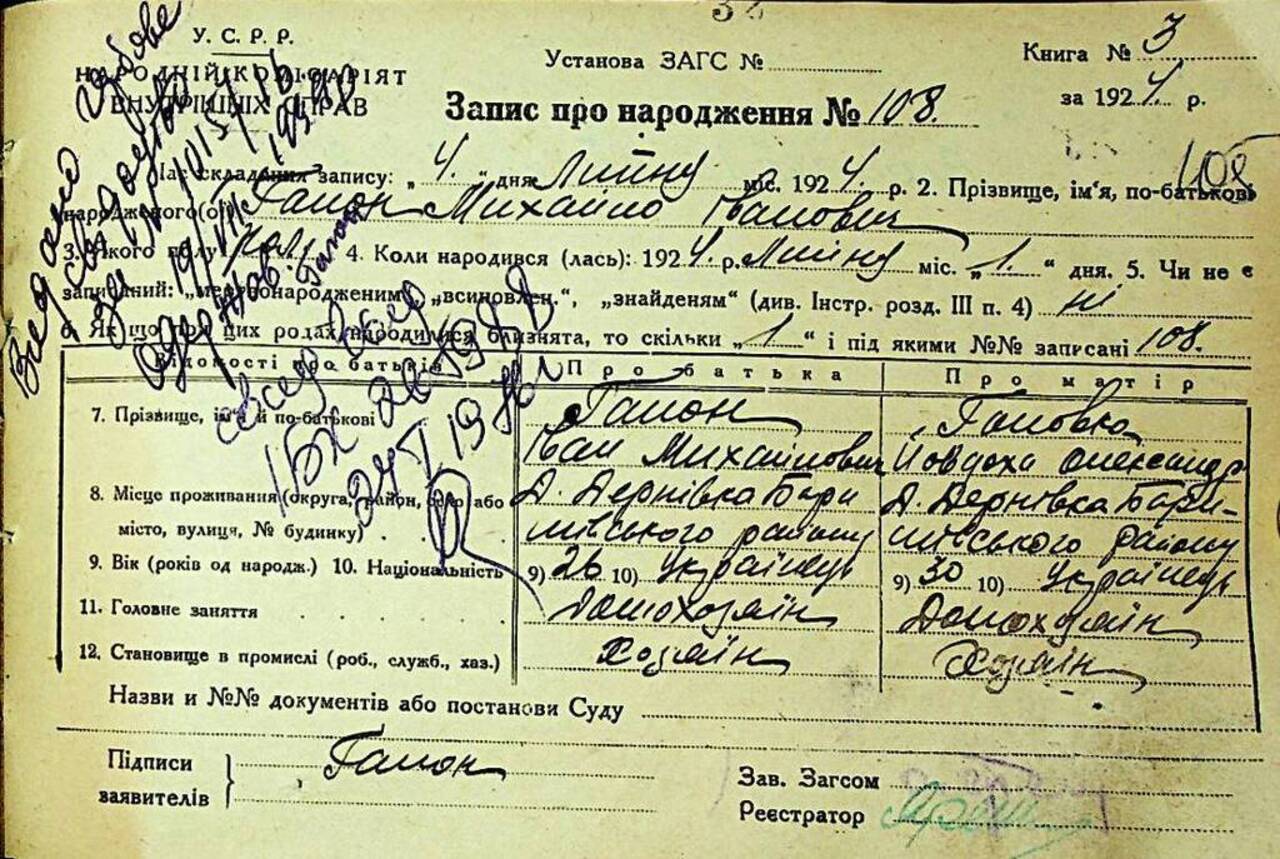 У. С. Р. Р.
НАРОДНІЙ КОМІСАРІЯТ
ВНУТРІШНІХ СПРАВ
Установа ЗАГС №
Книга № 3
за 1924 р.
Запис про народження № 108.
108
Час складання запису: „4.“ дня Липня міс. 1924 р. 2. Прізвище, ім'я, по-батькові
народженого(ої) Гапон Михайло Іванович
3. Якого полу чол. 4. Коли народився (лась): 1924 р. Липня міс. „1.“ дня. 5. Чи не є
записаний: „мертвонародженим“, „всиновлен.“, „знайденям“ (див. Інстр. розд. III п. 4) ні
6. Якщо при цих родах народилися близнята, то скільки „1“ і під якими №№ записані 108.
Відомості про батьків Про батька Про матір
7. Прізвище, ім'я й по-батькові Гапон Гаповка
Іван Михайлович Йовдоха Олександр
8. Місце проживання (округа, район, село або Д. Дернівка Бари Д. Дернівка Бари-
місто, вулиця, № будинку) шівського району шівського району
9. Вік (років од народж.) 10. Національність 9) 26 10) Українець 9) 30 10) Українець
11. Головне заняття Домохозяїн Домохозяїн
12. Становище в промислі (роб., служб., хаз.) Хозяїн Хозяїн
Назви и №№ документів або постанови Суду
Підписи
заявителів
Гапон
Зав. Загсом
Реєстратор
Видано
свідоцтво